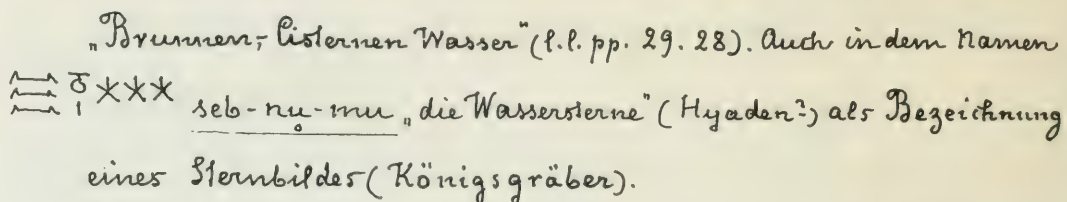 „Brunnen-, Cisternen Wasser“ (l. l. pp. 29. 28). Auch in dem Namen
seb-nu-mu „die Wassersterne“ (Hyaden?) als Bezeichnung
eines Sternbildes (Königsgräber).